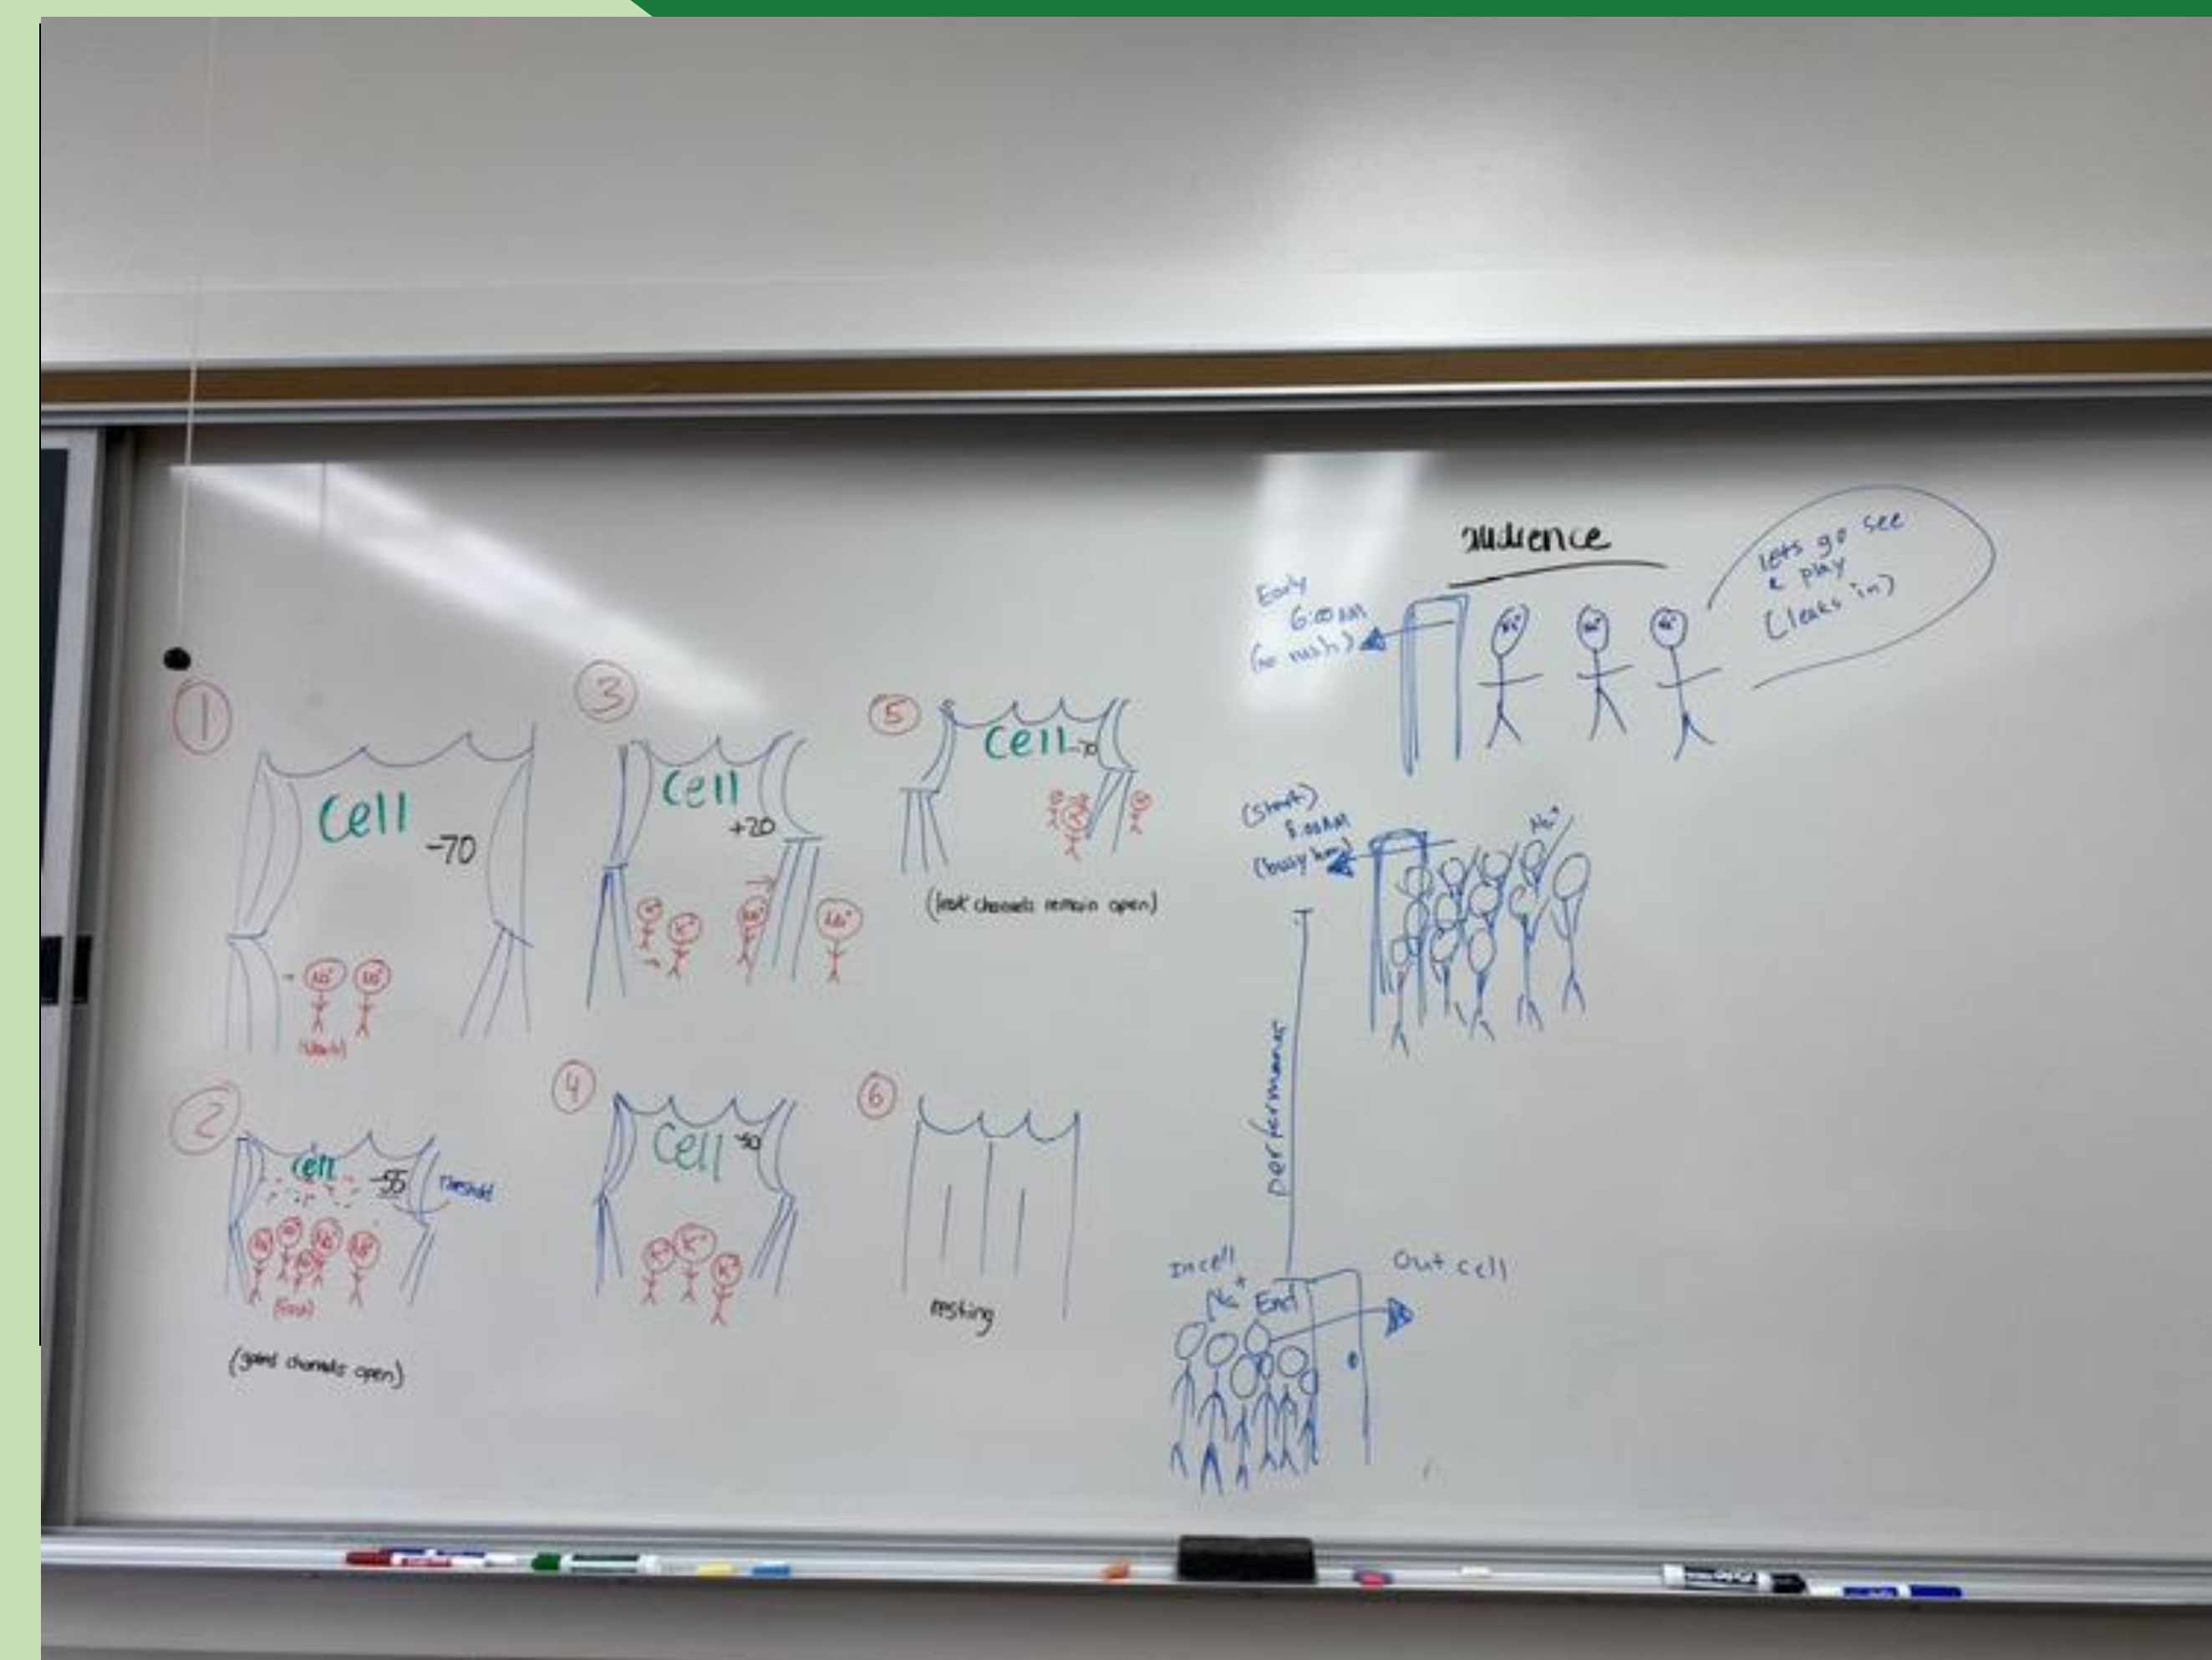 1
Cell
-70
Na+ Na+
2
Cell
-55
Threshold
Na+ Na+ Na+ Na+
(gated channels open)
3
Cell
+20
K+ K+ Na+ Na+
4
Cell
K+ K+ K+
5
Cell -70
(leak channels remain open)
6
resting
audience
Early
6:00 AM
(no rush)
Na+ Na+ Na+
lets go see
a play
(leaks in)
(start)
8:00AM
Na+
performance
In cell
Na+ End
Out cell